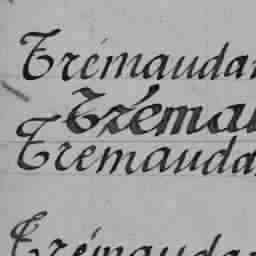 Trémaudan
Tréma
Tremauda
Trémaudan